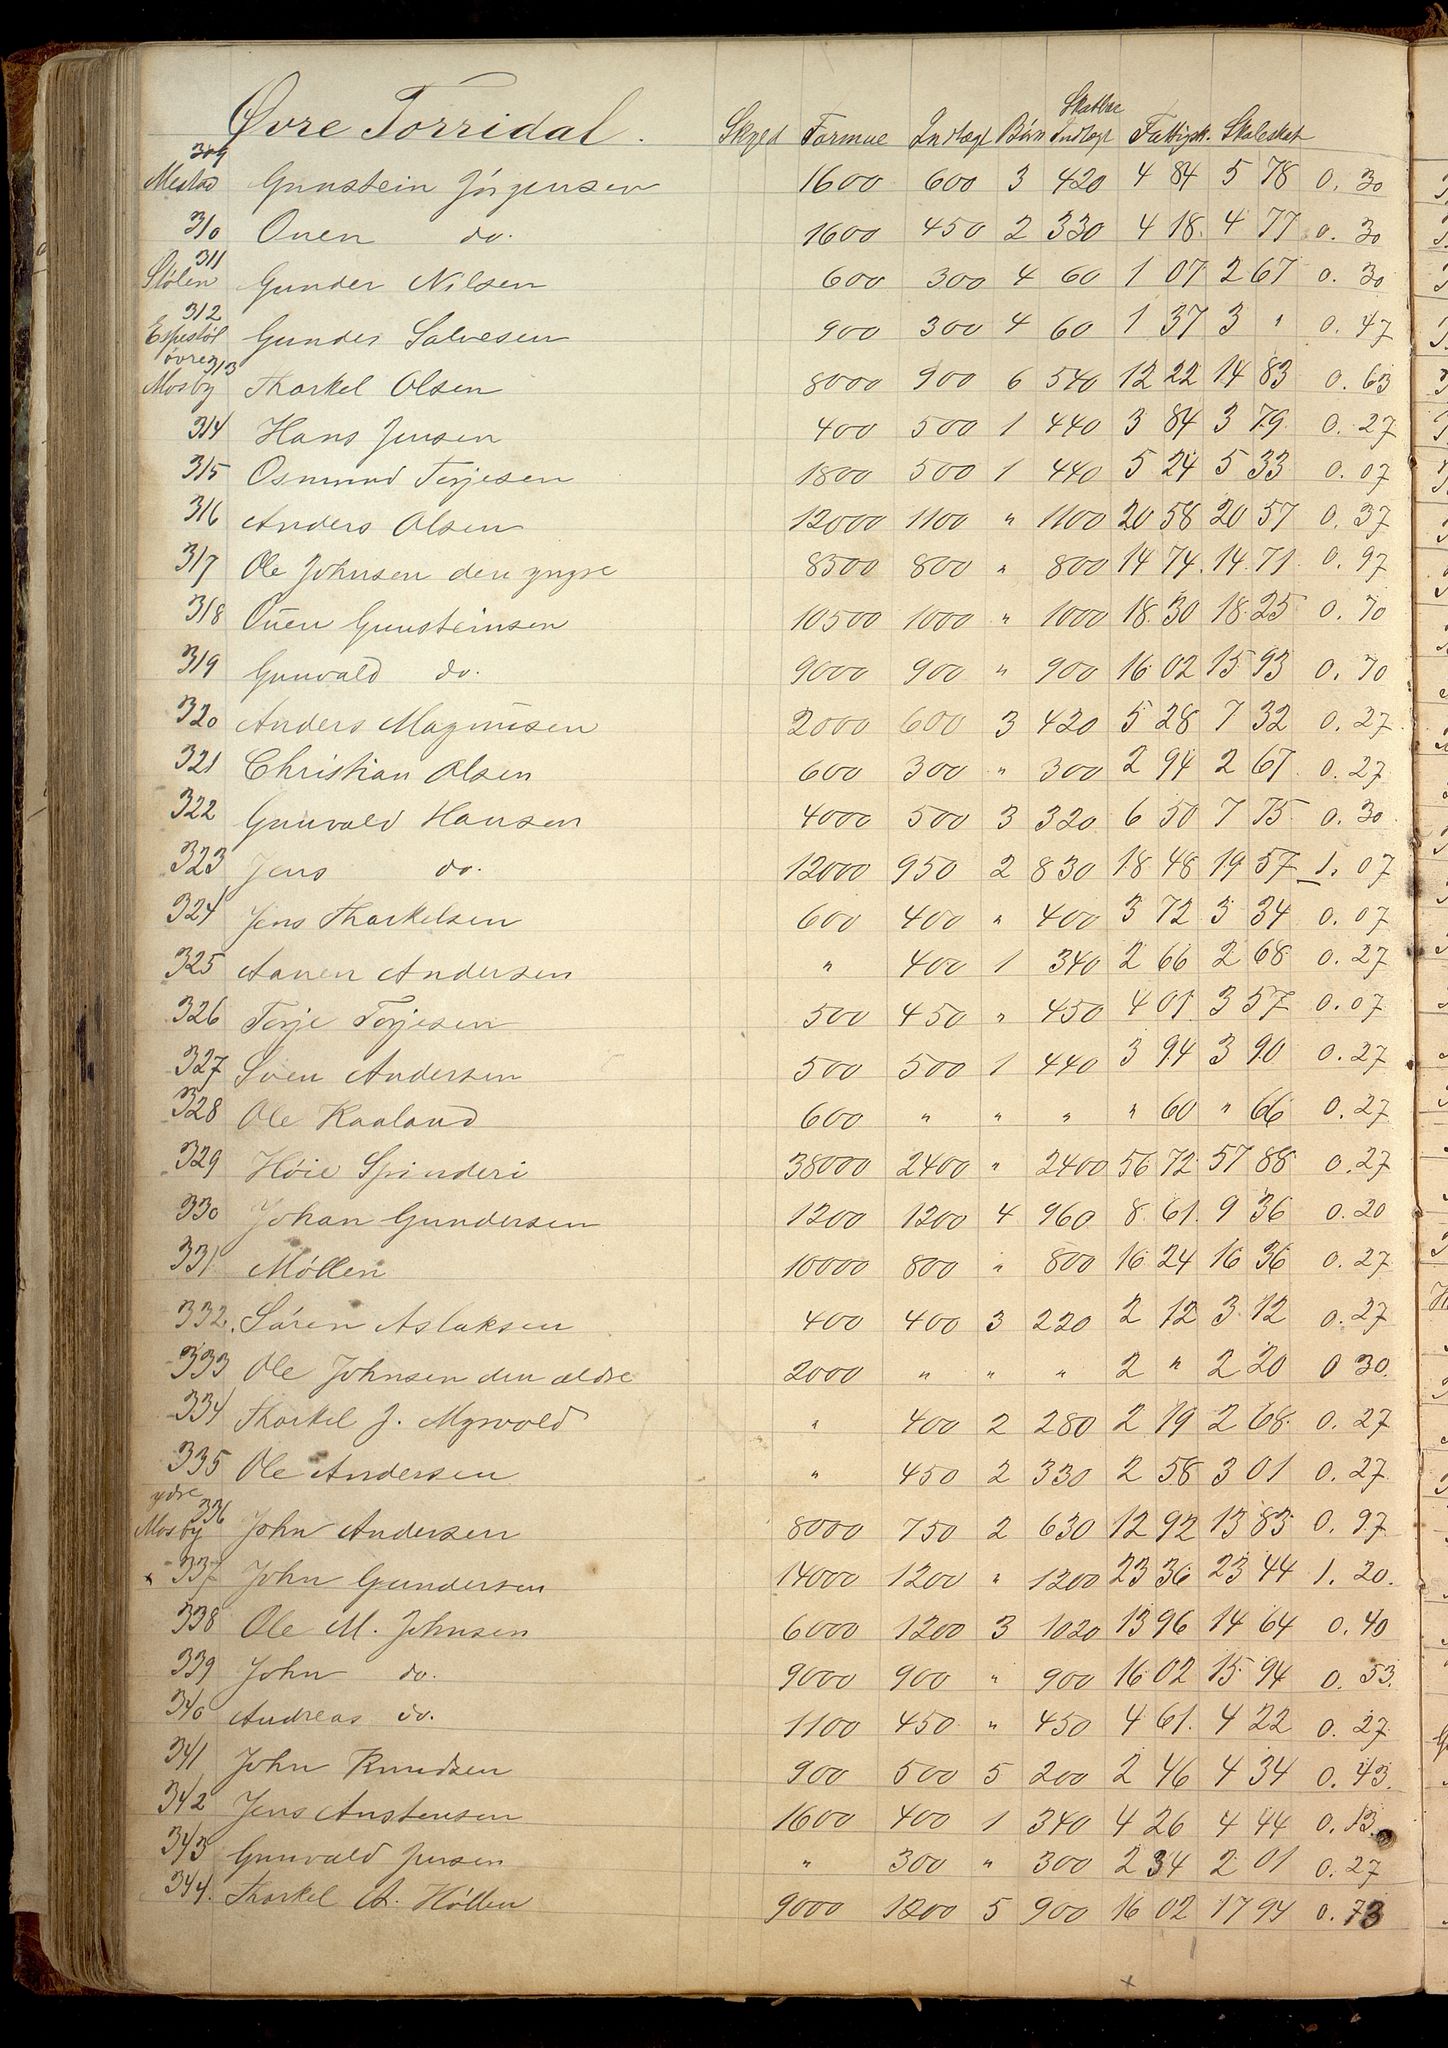 Øvre Torridal. Skyld Formue Indtægt Børn Skatbar Indtægt Fattigsk. Skoleskat
309 Mestad Gunstein Jørgensen 1600 600 3 420 4 84 5 78 0. 30
310 Ouen do. 1600 450 2 330 4 18. 4 77 0. 30
311 Stølen Gunder Nilsen 600 300 4 60 1 07 2 67 0. 30
312 Espestøl Gunder Salvesen 900 300 4 60 1 37 3 " 0. 47
øvre 313 Mosby Thorkel Olsen 8000 900 6 540 12 22 14 83 0. 63
314 Hans Jensen 400 500 1 440 3 84 3 79 0. 27
315 Osmund Terjesen 1800 500 1 440 5 24 5 33 0. 07
316 Anders Olsen 12000 1100 " 1100 20 58 20 57 0. 37
317 Ole Johnsen den yngre 8500 800 " 800 14 74. 14. 71 0. 97
318 Ouen Gunsteinsen 10500 1000 " 1000 18. 30 18 25 0. 70
319 Gunvald do. 9000 900 " 900 16 02 15 93 0. 70
320 Anders Magnusen 2000 600 3 420 5 28 7 32 0. 27.
321 Christian Olsen 600 300 " 300 2 94 2 67. 0. 27
322 Gunvald Hansen 4000 500 3 320 6 50 7 75. 0. 30
323 Jens do. 12000 950 2 830 18 48 19 57 1. 07
324 Jens Thorkelsen 600 400 " 400 3 72 3 34 0. 07
325 Aanen Andersen " 400 1 340 2 66 2 68 0. 27
326 Terje Terjesen 500 450 " 450 4 01. 3 57 0. 07
327 Sven Andersen 500 500 1 440 3 94 3 90 0. 27
328 Ole Kaaland 600 " " " " 60 " 66 0. 27
329 Høie Spinderi 38000 2400 " 2400 56 72 57 88 0. 27
330 Johan Gundersen 1200 1200 4 960 8. 61. 9 36 0. 20
331 Møllen 10000 800 " 800 16 24 16 36 0. 27
332. Søren Aslaksen 400 400 3 220 2 12 3 12 0. 27
333 Ole Johnsen den ældre 2000 " " " 2 " 2 20 0 30.
334 Thorkel J. Myrvold " 400 2 280 2 19 2 68. 0. 27
335 Ole Andersen " 450 2 330 2 58 3 01 0. 27
ydre 336 Mosby John Andersen 8000 750 2 630 12 92 13 83 0. 97
x 337 John Gundersen 14000 1200 " 1200 23 36 23 44 1. 20.
338 Ole M. Johnsen 6000 1200 3 1020 13 96 14 64 0. 40
339 John do. 9000 900 " 900 16 02 15 94 0. 53.
340 Andreas do. 1100 450 " 450 4 61. 4 22 0. 27
341 John Knudsen 900 500 5 200 2 46 4 34 0. 43.
342 Jens Anstensen 1600 400 1 340 4 26 4 44 0. 13.
343 Gunvald Jensen " 300 " 300 2 34 2 01 0. 27
344. Thorkel A. Høllen 9000 1200 5 900 16 02 17 94 0. 73
x